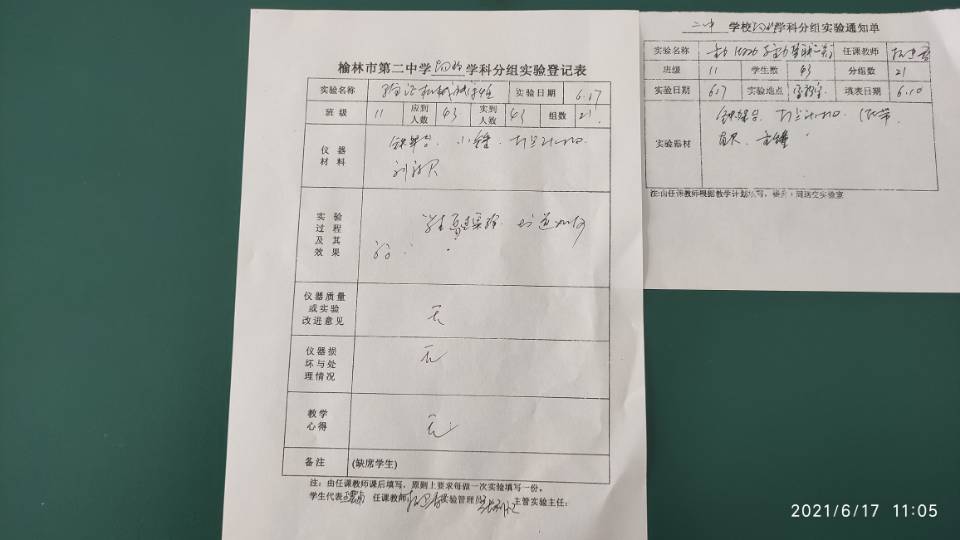 榆林市第二中学物理学科分组实验登记表
实验名称 验证机械能守恒 实验日期 6.17
班级 11 应到人数 43 实到人数 43 组数 21
仪器
材料
铁架台、小锤、打点计时器
刻度尺
实验
过程
及其
效果
仪器质量
或实验
改进意见
无
仪器损
坏与处
理情况
无
教学
心得
无
备注 (缺席学生)
注:由任课教师课后填写,原则上要求每做一次实验填写一份。
学生代表 任课教师 实验管理员 主管实验主任:
二中 学校物理学科分组实验通知单
实验名称 任课教师
班级 11 学生数 43 分组数 21
实验日期 6.17 实验地点 实验室 填表日期 6.10
实验器材
铁架台、打点计时器、纸带、
直尺、重锤
注:由任课教师根据教学计划填写,提前一周送交实验室
2021/6/17 11:05